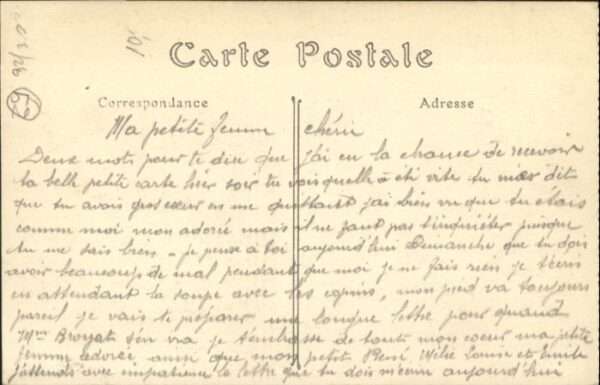 Carte Postale
Correspondance Adresse
Ma petite femme chérie
Deux mots pour te dire que j'ai eu la chance de recevoir
ta belle petite carte hier soir tu vois quelle à été vite tu m'as dit
que tu avais gros cœur en me quittant j'ai bien vu que tu étais
comme moi mon adorée mais il ne faut pas t'inquiéter puisque
tu me sais bien - je pense à toi aujourd'hui Dimanche que tu dois
avoir beaucoup de mal pendant que moi je ne fais rien je t'écris
en attendant la soupe avec les copins, mon pied va toujours
pareil je vais te préparer une longue lettre pour quand
Mme s'en va je t'embrasse de tout mon cœur ma petite
femme adorée ainsi que mon petit René, Louise et Emile
J'attends avec impatience la lettre que tu dois m'écrire aujourd'hui